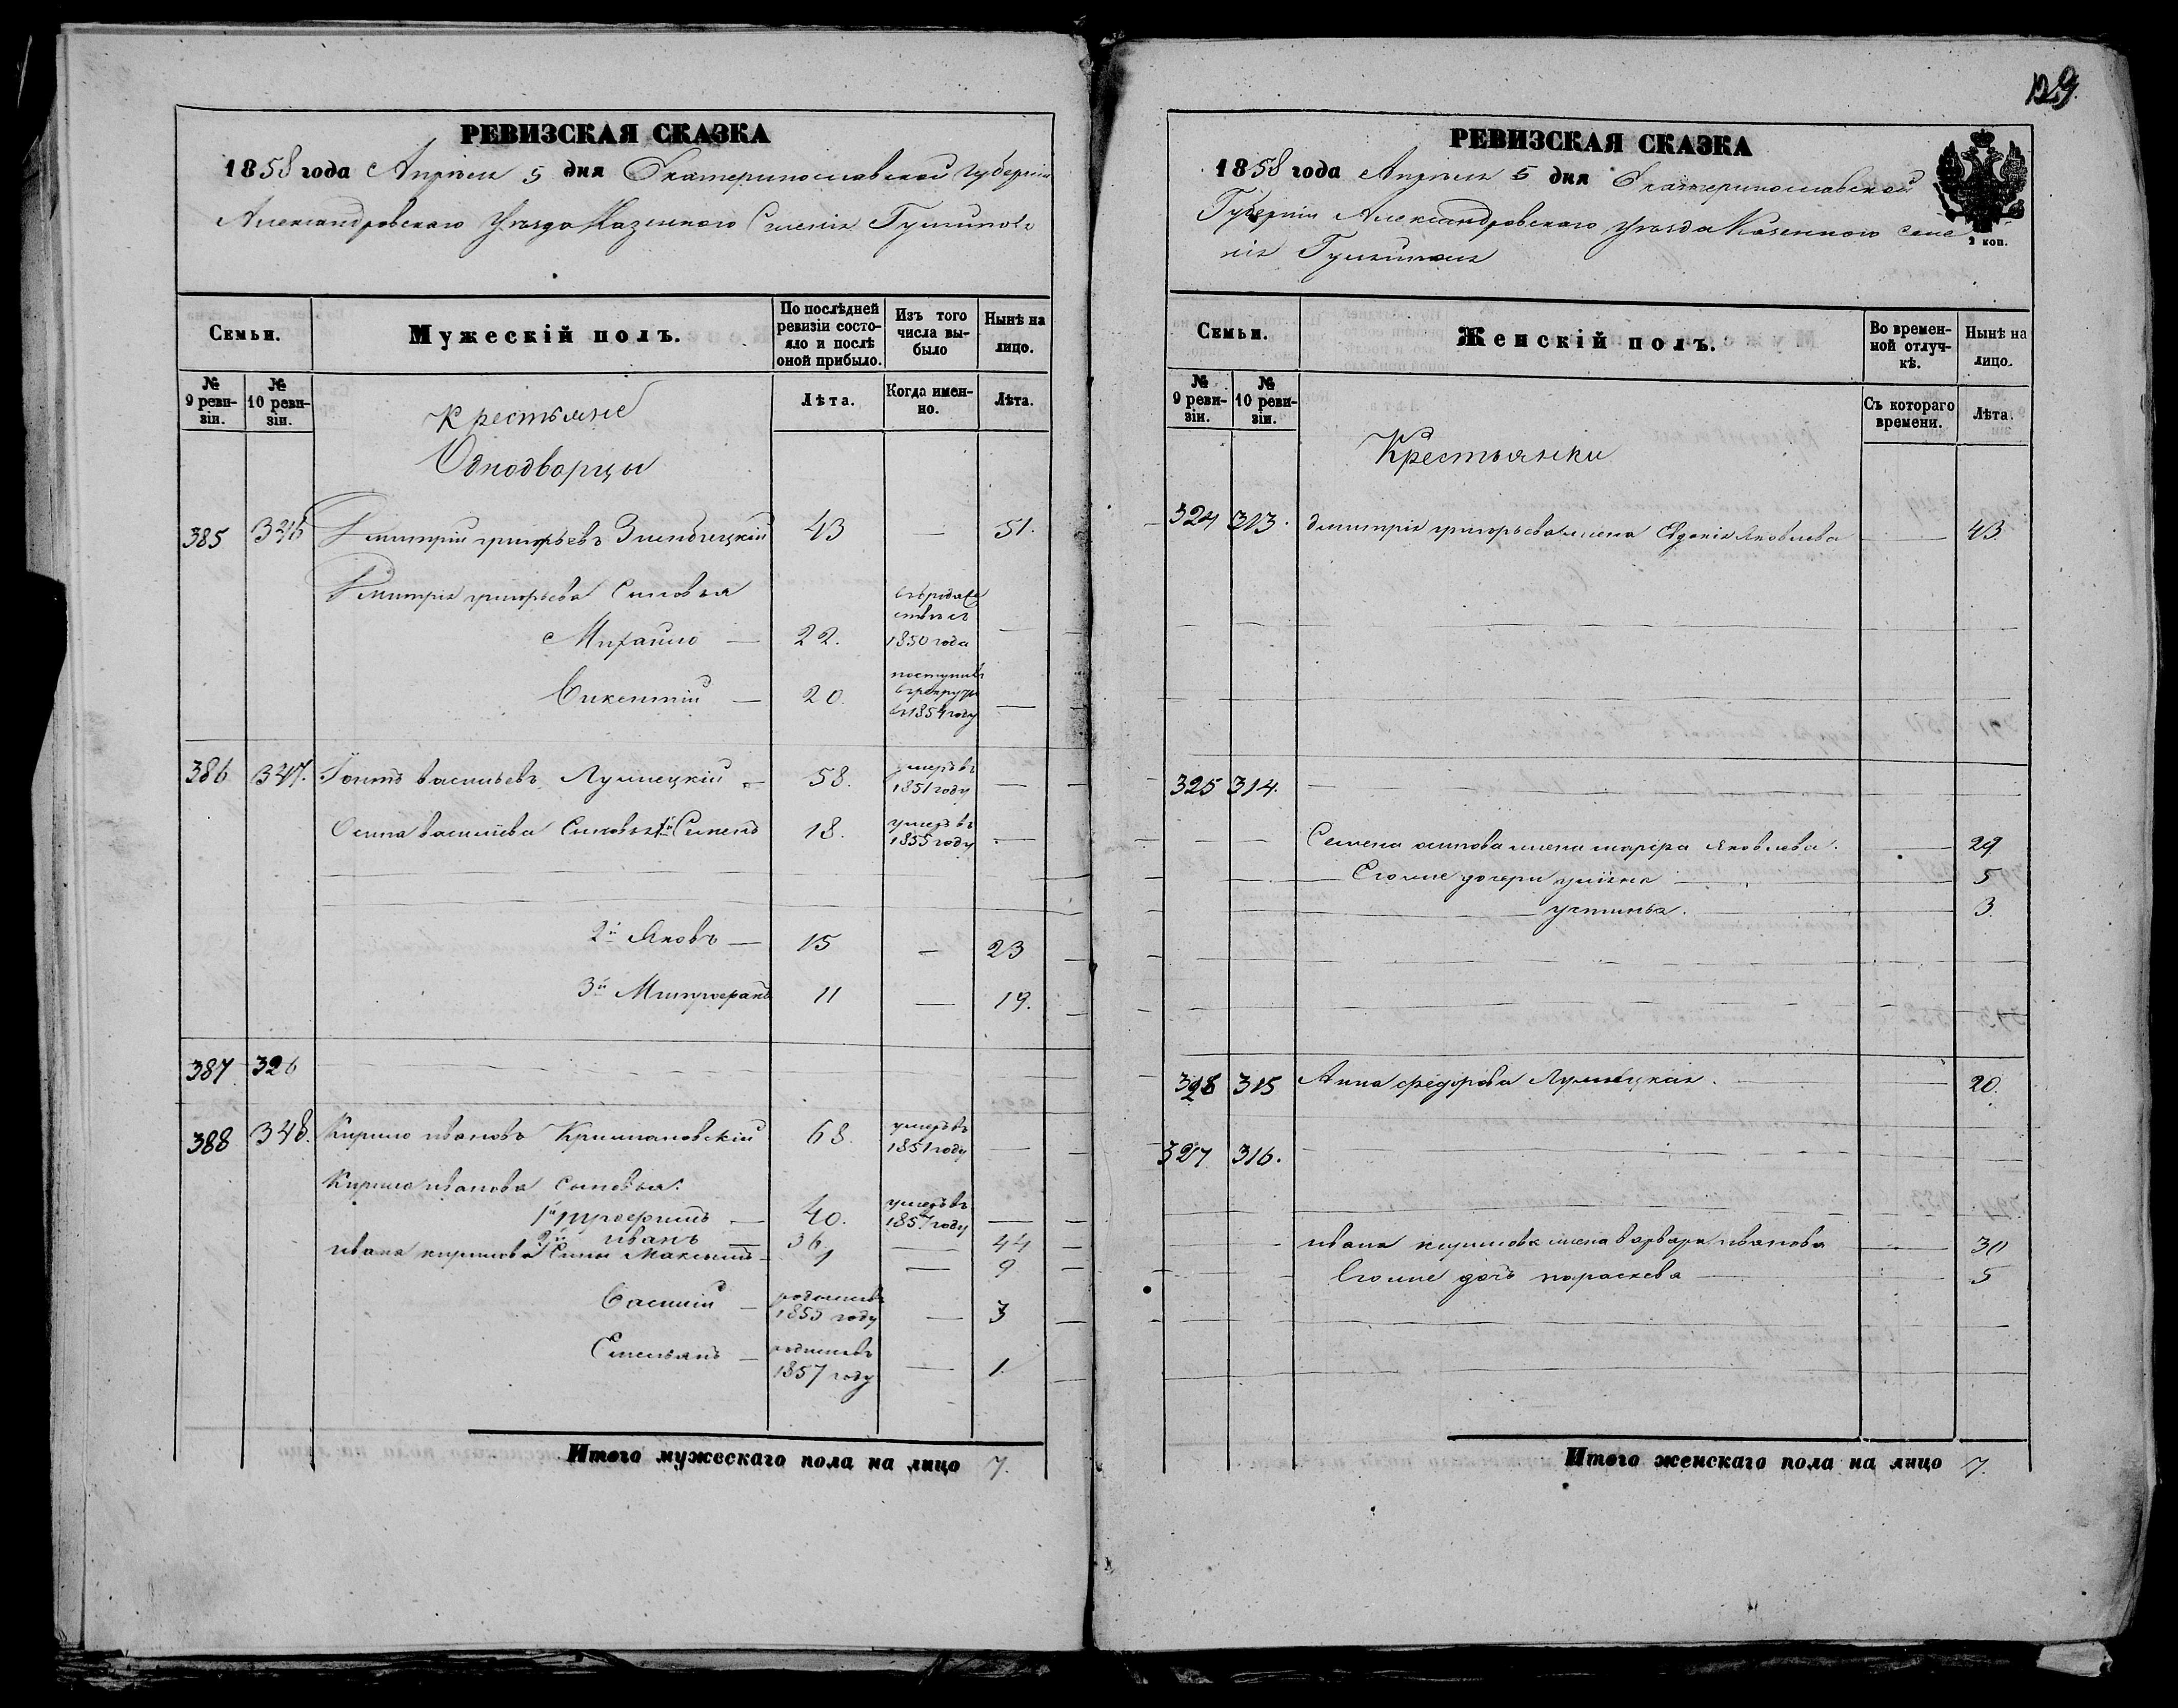 129.
РЕВИЗСКАЯ СКАЗКА
1858 года Апреля 5 дня Екатеринославской Губернiи
Александровского Уѣзда Казенного Селенiя
Семьи.
Мужескiй полъ.
По послѣдней ревизiи состояло и послѣ оной прибыло.
Изъ того числа выбыло
Нынѣ на лицо.
№ 9 ревизiи.
№ 10 ревизiи.
Лѣта.
Когда именно.
Лѣта.
Крестьяне
Однодворцы
385 346 Дмитрiй григорьевъ 43 — 51.
Дмитрiя григорьева Сыновья
Михайло — 22. 1850 года —
Викентiй — 20. поступилъ в рекруты в 1854 году —
386 347. васильевъ 58. умеръ в 1851 году —
Осипа василiева Сыновья 1й Семенъ 18. умеръ в 1855 году —
2й Яковъ — 15 — 23
3й Митрофанъ 11 — 19.
387 326
388 348. Кирило ивановъ 68. умеръ в 1851 году —
Кирила иванова сыновья:
1й трофимъ — 40. умеръ в 1857 году —
2й иванъ — 36 — 44
ивана кирилова Сыны Максимъ 1 — 9
Василiй — родился в 1855 году — 3
Емельянъ — родился в 1857 году — 1.
Итого мужескаго пола на лицо 7.
РЕВИЗСКАЯ СКАЗКА
1858 года Апреля 5 дня Екатеринославской
Губернiи Александровского Уѣзда Казенного селе
нiя
2 коп.
Семьи.
Женскiй полъ.
Во временной отлучкѣ.
Нынѣ на лицо.
№ 9 ревизiи.
№ 10 ревизiи.
Съ котораго времени.
Лѣта.
Крестьянки
324 313. дмитрiя григорьева жена Евдокiя яковлева — 43.
325 314.
Семена осипова жена марфа яковлева. — 29
Его же дочери — 5
устинья. — 3.
326 315 Анна федорова — 20.
327 316.
ивана кирилова жена варвара иванова — 30
Его же дочь параскева — 5
Итого женскаго пола на лицо 7.